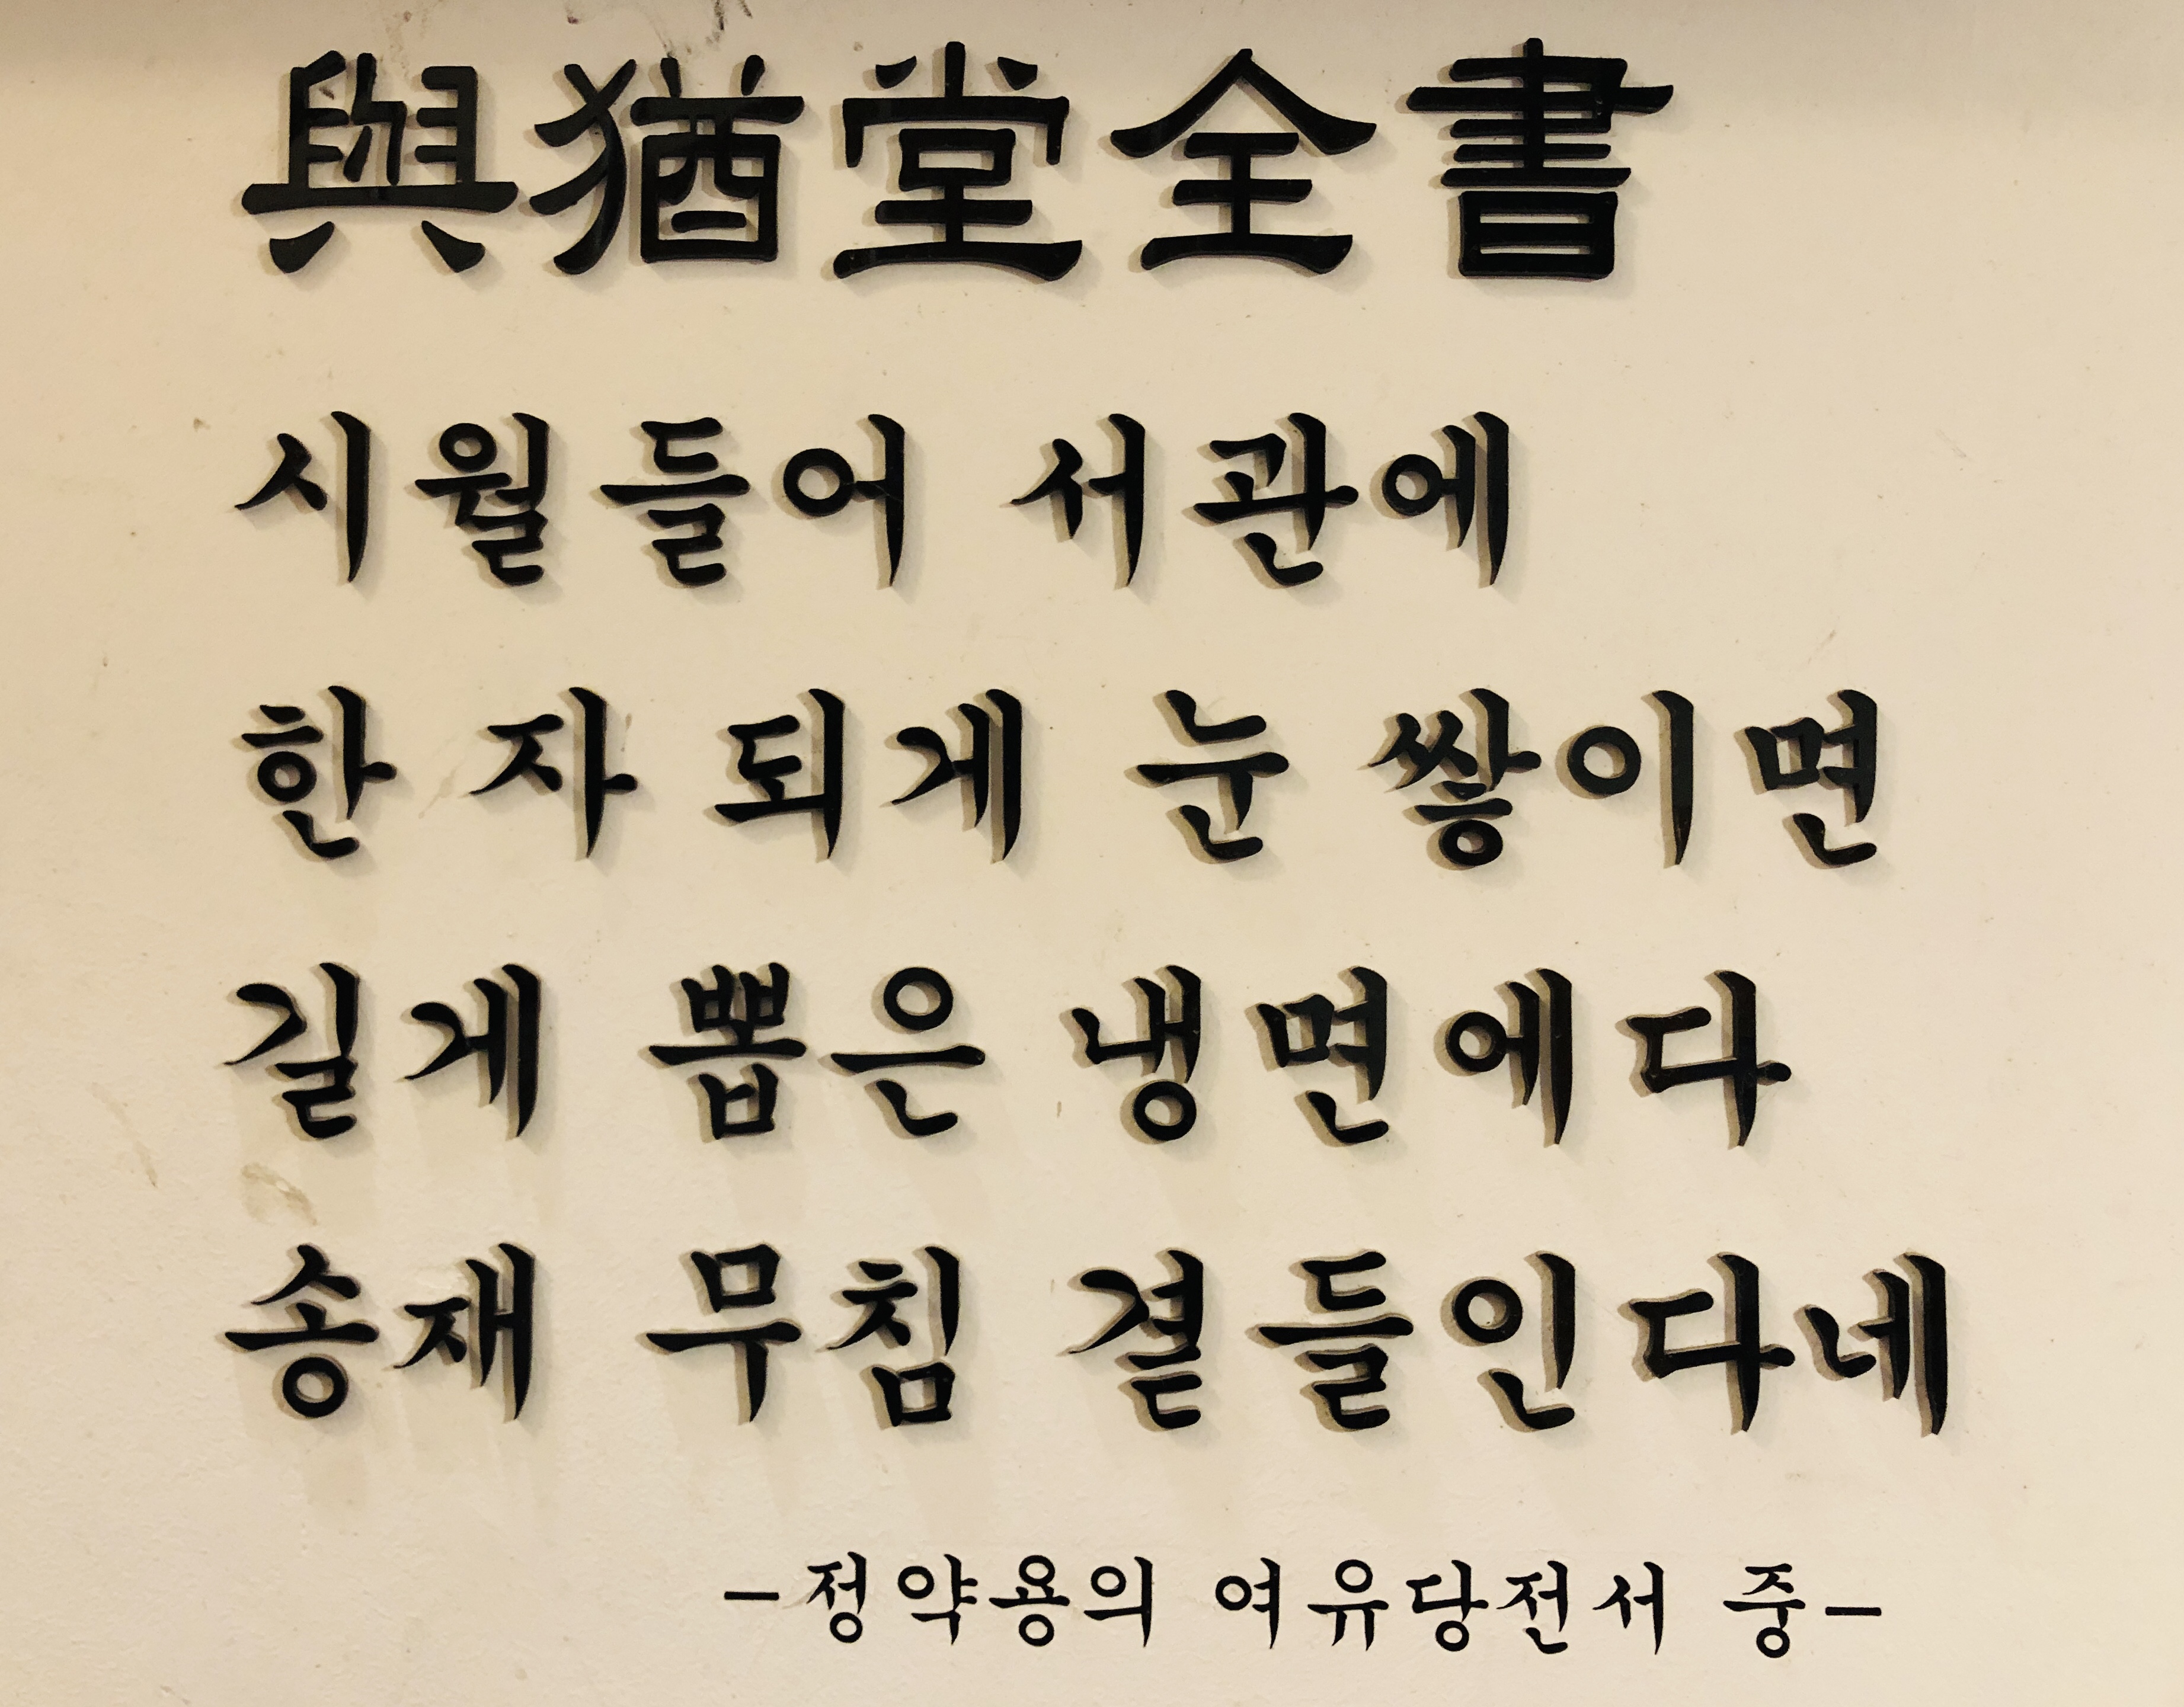 與猶堂全書
시월들어 서관에
한 자 되게 눈 쌓이면
길게 뽑은 냉면에다
송재 무침 곁들인다네
-정약용의 여유당전서 중-